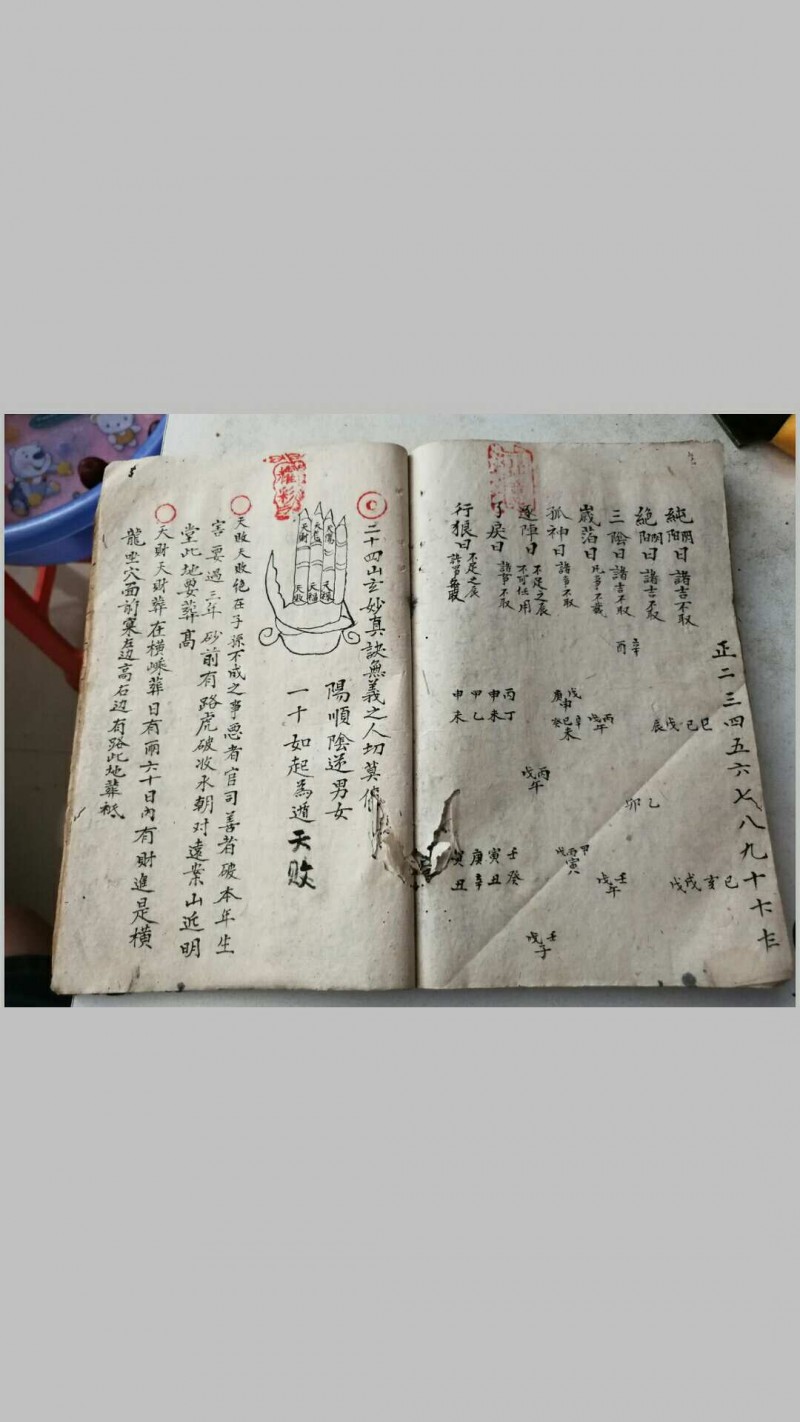 正二三四五六七八九十
純陽日 諸吉不取
巳 己 戊 辰
己 亥 戌 戊
絕陽日 諸吉不取
乙 卯
三陰日 諸吉不取
辛 酉
歲箔日 凡事不哉
丙 戊 午
壬 戊 午
孤神日 諸事不取
戊 申 庚
辛 巳 癸 未
甲 丙 寅 戊
逐陣日 不足之辰 不可任用
丙 戊 午
壬 戊 子
子戾日 諸事不取
丙 申 甲 申
丁 未 乙 未
壬 寅 庚 寅
癸 丑 辛 丑
行狼日 不足之辰 諸事無取
二十四山玄妙真訣無義之人切莫傳
陽順陰逆男女
一十如起為遁天敗
天財
天敗
天敗天敗絕在子源不成之事悪者官司善者破本年生
害要過三年砂前有路虎破收水朝对遠案山近明
堂此地要葬高
天財天財葬在橫嵊葬日有雨六十日內有財進是橫
龍坐穴面前窠左边高右边有路此地葬